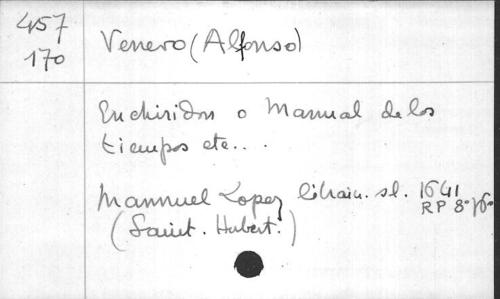 457
170
Venero (Alfonso)
Enchiridon o Manual de los
tiempos etc...
Mannuel Lopez librair. sl. 1641
RP 8º
(Saint. Hubert.)